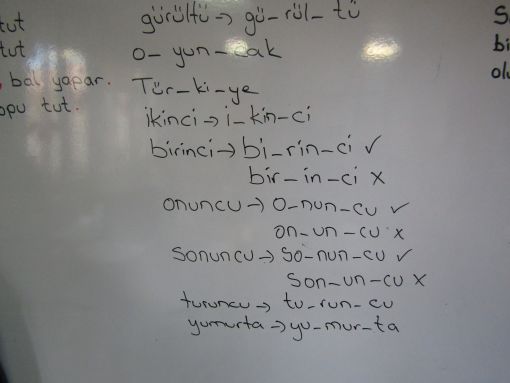 tut
tut
bal yapar.
opu tut.
gürültü → gü-rül-tü
o-yun-cak
Tür-ki-ye
ikinci → i-kin-ci
birinci → bi-rin-ci ✓
bir-in-ci x
onuncu → o-nun-cu ✓
on-un-cu x
sonuncu → so-nun-cu ✓
son-un-cu x
turuncu → tu-run-cu
yumurta → yu-mur-ta
S
bi
olu